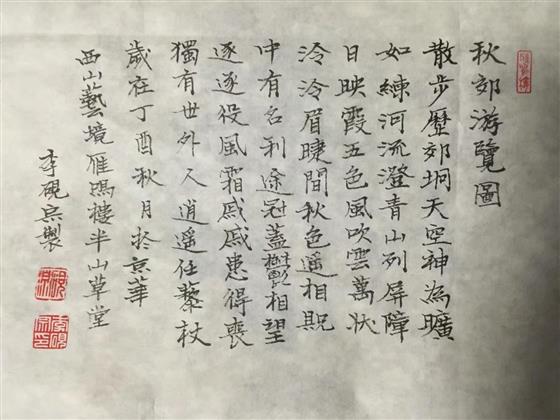 秋郊游覽圖
散步歷郊坰天空神為曠
如練河流澄青山列屏障
日映霞五色風吹雲萬狀
泠泠眉睫間秋色遥相貺
中有名利途冠蓋鬱相望
逐逐役風霜戚戚患得喪
獨有世外人逍遥任藜杖
歲在丁酉秋月於京華
西山藝境雁鳴樓半山草堂
李硯製